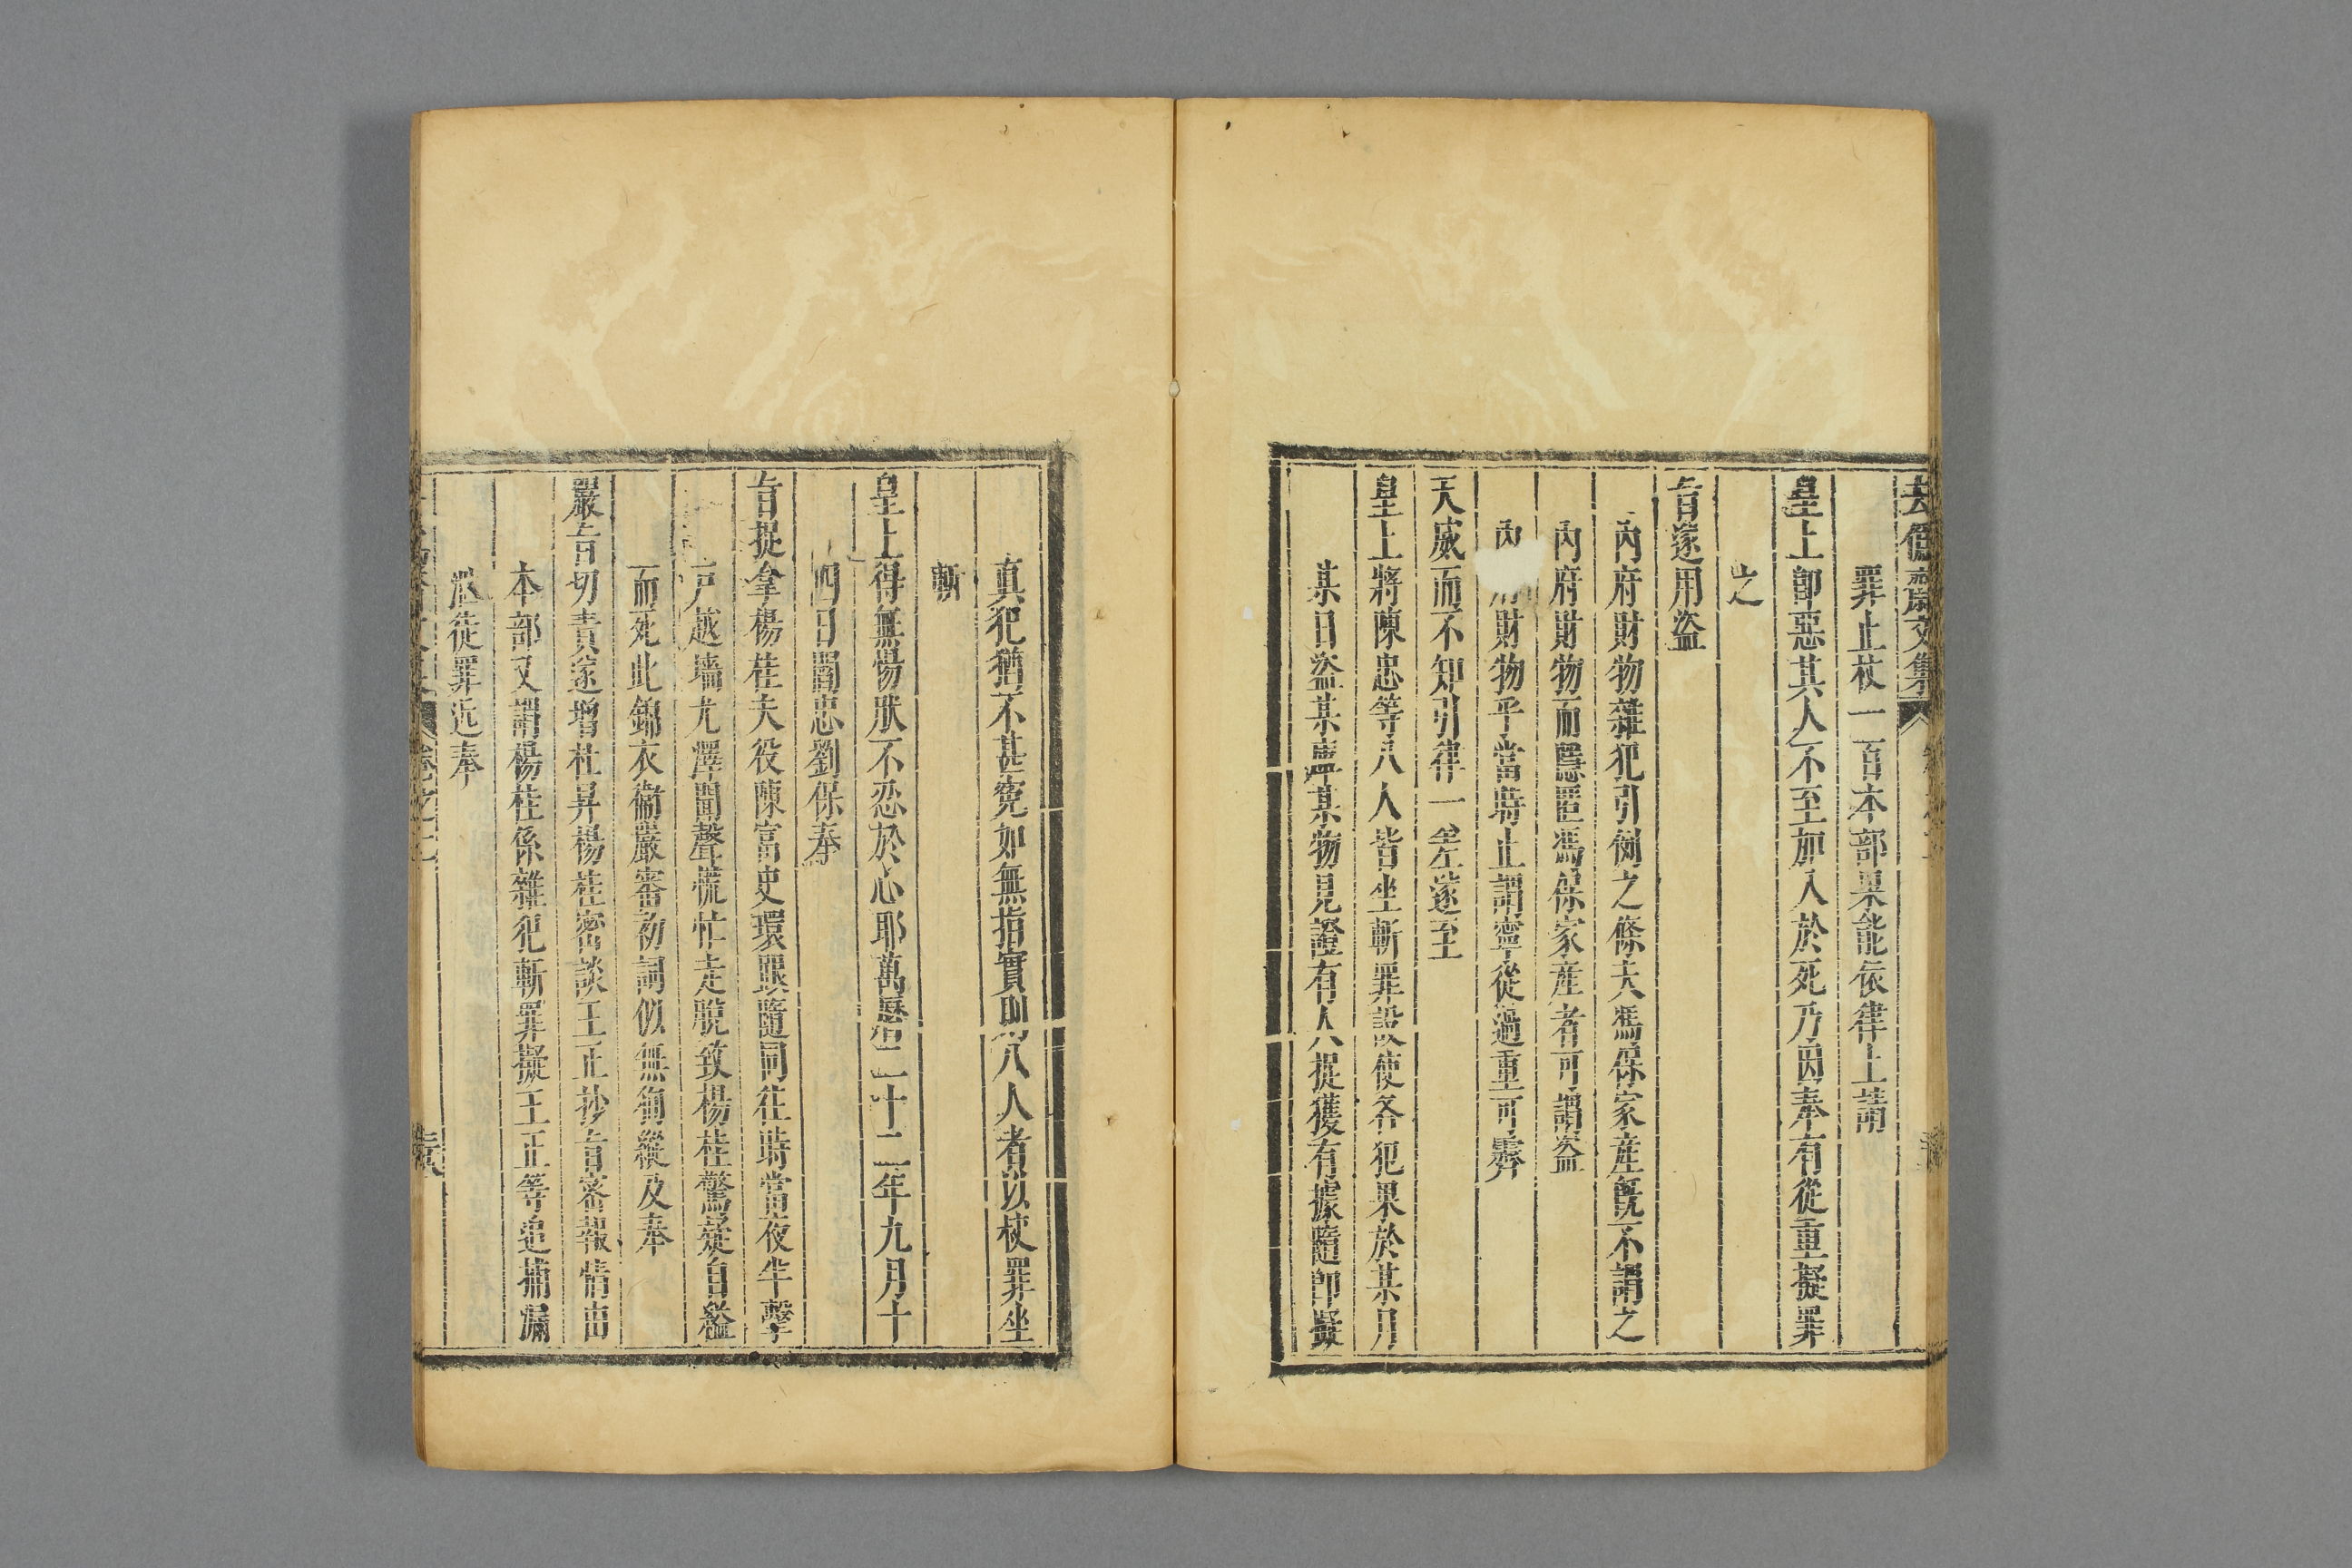 去偽齋文集
罪止杖一百本部果能依律上請
皇上卽惡其人不至加入於死乃因奉有從重擬罪
之
旨遂用盜
內府財物雜犯引例之條夫馮保家產旣不謂之
內府財物而隱匿馮保家產者可謂盜
內府財物乎當時止謂寧從過重可霽
天威而不知引律一差遂至
皇上將陳忠等八人皆坐斬罪設使各犯果於某月
某日盜某庫某物見證有人捉獲有據隨卽擬
真犯猶不甚寃如無指實則八人者以杖罪坐
斬
皇上得無惕狀不忍於心耶萬曆二十二年九月十
四日閻忠劉保奉
旨捉拿楊桂夫役陳富史環跟隨同往時當夜半擊
戶越墻尤澤聞聲慌忙走脫致楊桂驚疑自縊
而死此錦衣衛嚴審初詞似無徇縱及奉
嚴旨切責遂增杜昇楊桂密談王正抄旨密報情由
本部又謂楊桂係雜犯斬罪擬王正等追捕漏
洩徒罪近奉